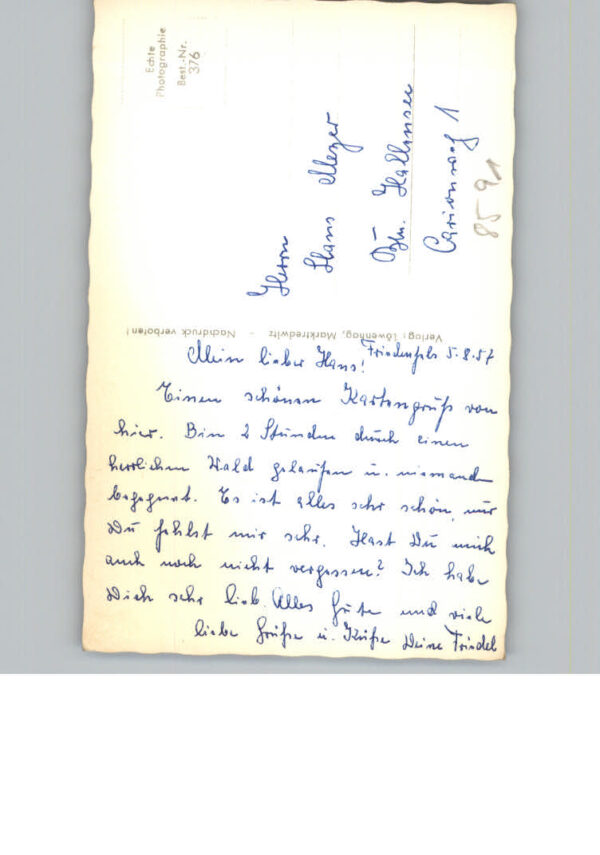 Echte
Photographie
Best.-Nr.
376
Herrn
Hans Meyer
Bln. Hallensee
Carionweg 1
85 91
Verlag: Löwenhag, Marktredwitz - Nachdruck verboten!
Friedenfels 5.8.57
Mein lieber Hans!
Einen schönen Kartengruß von
hier. Bin 2 Stunden durch einen
herrlichen Wald gelaufen u. niemand
begegnet. Es ist alles sehr schön, nur
Du fehlst mir sehr. Hast Du mich
auch noch nicht vergessen? Ich habe
Dich sehr lieb. Alles Gute und viele
liebe Grüße u. Küße Deine Friedel